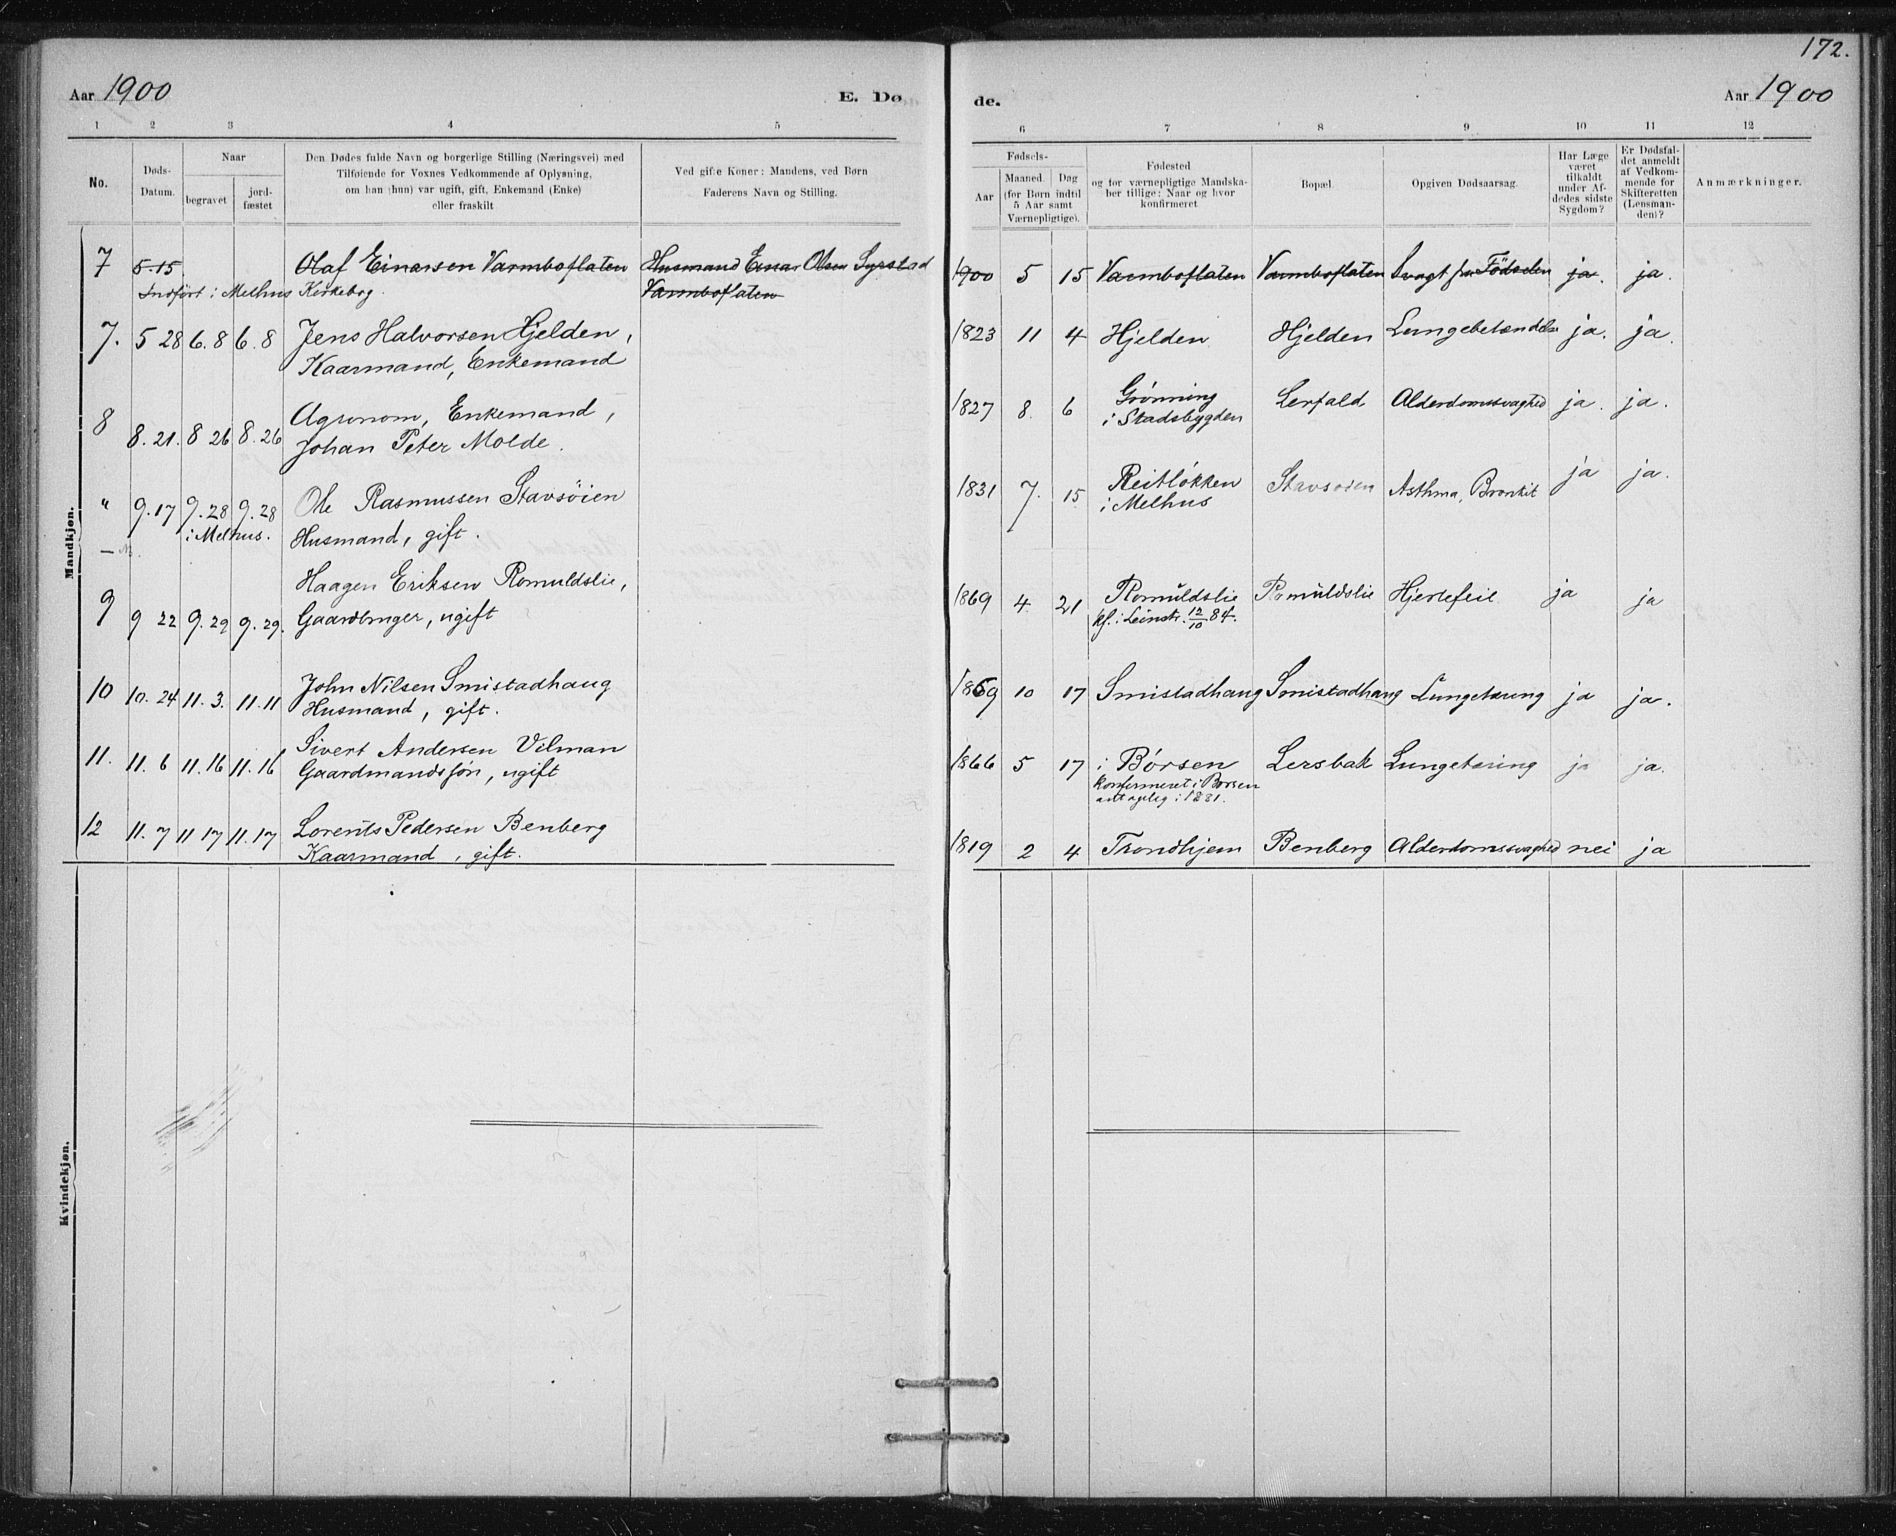 172.
Aar 1900
E. Dø
de.
Aar 1900
1 2 3 4 5
6 7 8 9 10 11 12
No.
Døds-
Datum.
Naar
begravet
jord-
fæstet
Den Dødes fulde Navn og borgerlige Stilling (Næringsvei) med
Tilføiende for Voxnes Vedkommende af Oplysning,
om han (hun) var ugift, gift, Enkemand (Enke)
eller fraskilt
Ved gifte Koner: Mandens, ved Børn
Faderens Navn og Stilling.
Fødsels-
Aar
Maaned. Dag
(for Børn indtil
5 Aar samt
Værnepligtige).
Fødested
og for værnepligtige Mandska-
ber tillige: Naar og hvor
konfirmeret
Bopæl.
Opgiven Dødsaarsag.
Har Læge
været
tilkaldt
under Af-
dødes sidste
Sygdom?
Er Dødsfal-
det anmeldt
af Vedkom-
mende for
Skifteretten
(Lensman-
den)?
Anmærkninger.
Mandkjøn.
7 5.15 Olaf Einarsen Varmboflaten Husmand Einar Olsen Syrstad 1900 5 15 Varmboflaten Varmboflaten Svagt fra Födselen ja. ja.
Indført i Melhus Kirkebog. Varmboflaten
7. 5 28 6.8 6.8 Jens Halvorsen Hjelden, 1823 11 4 Hjelden Hjelden Lungebetændelse ja. ja.
Kaarmand, Enkemand
8 8.21. 8 26 8.26 Agronom, Enkemand, 1827 8. 6 Grönning Lerfald Alderdomssvaghed ja. ja.
Johan Peter Molde. i Stadsbygden
" 9.17 9.28 9.28 Ole Rasmussen Stavsöien 1831 7. 15 Reitløkken Stavsøien Asthma, Bronkit ja ja.
i Melhus. Husmand, gift. i Melhus
9 9 22 9.29 9.29. Haagen Eriksen Romuldslie, 1869 4. 21 Romuldslie Romuldslie Hjertefeil ja ja
Gaardbruger, ugift kf. i Leinstr. 12/10 84.
10 10.24 11.3. 11.11 John Nilsen Smistadhaug 1869 10 17 Smistadhaug Smistadhaug Lungetæring ja ja.
Husmand, gift.
11. 11.6 11.16 11.16 Sivert Andersen Vilman 1866 5 17 i Börsen Lersbak Lungetæring ja ja.
Gaardmandssøn, ugift konfirmeret i Børsen
antagelig i 1881.
12 11.7 11 17 11.17 Lorents Pedersen Benberg 1819 2 4 Trondhjem Benberg Alderdomssvaghed nei ja
Kaarmand, gift.
Kvindekjøn.